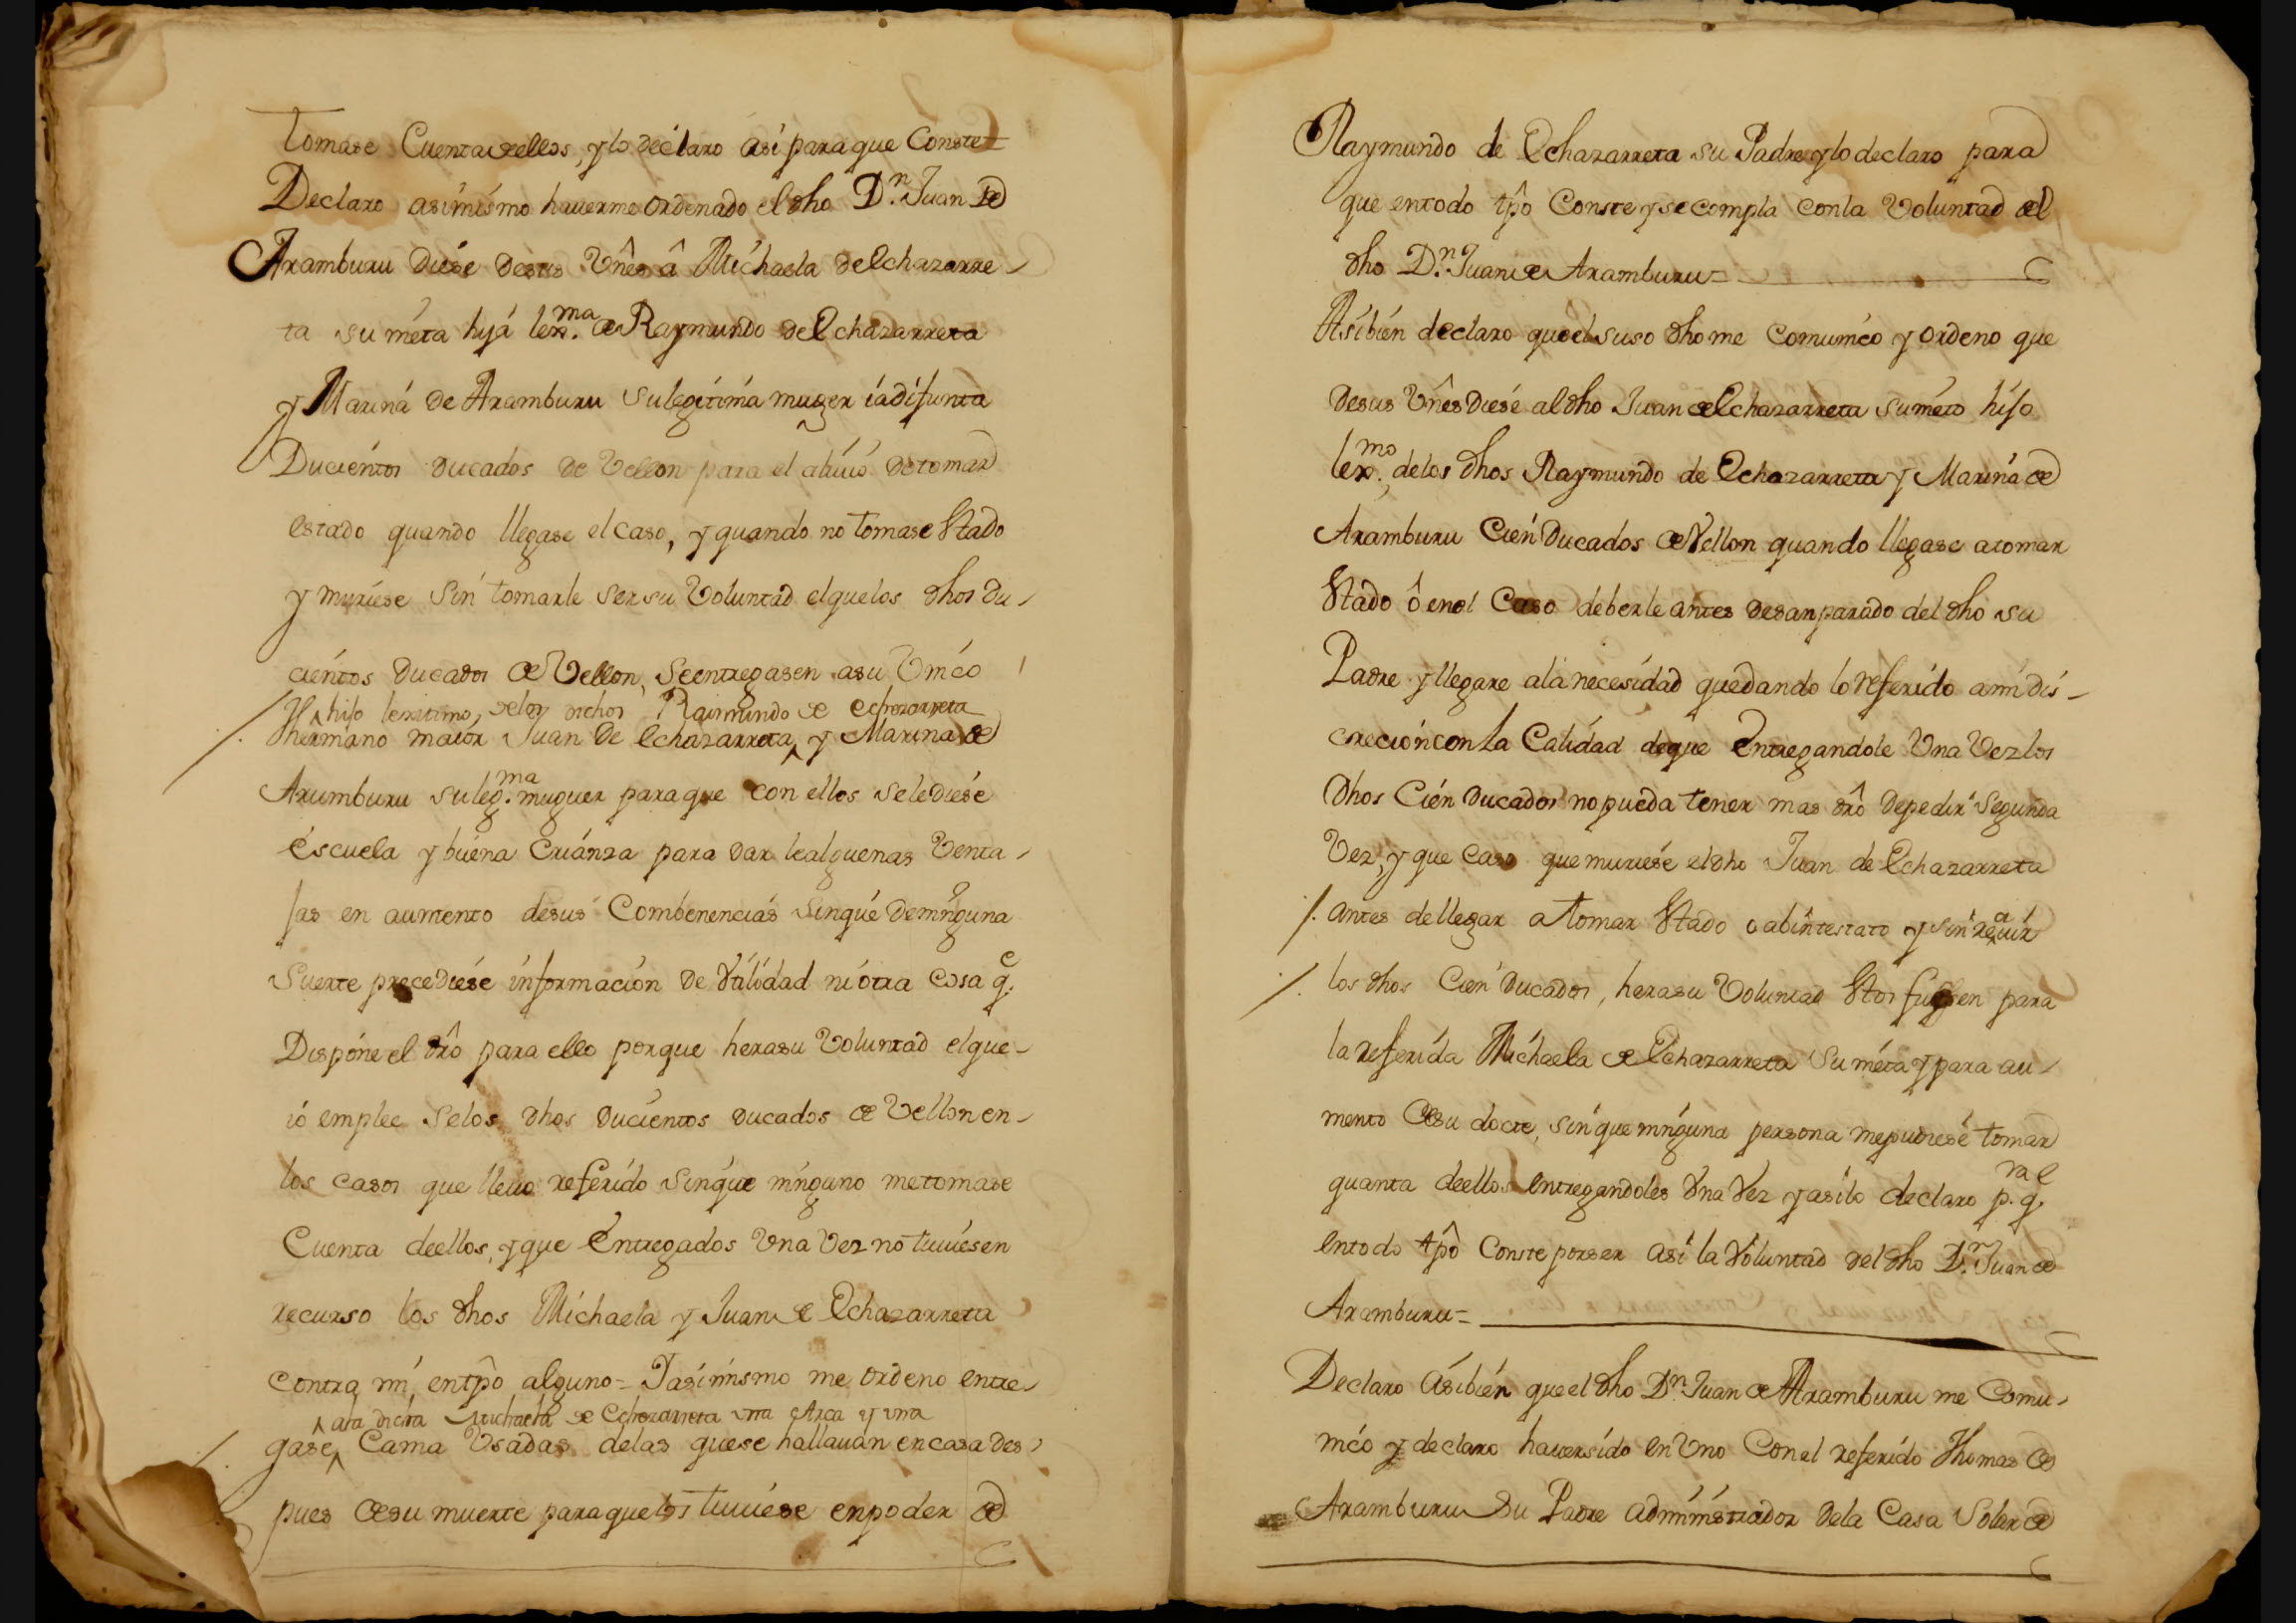 tomase Cuenta de ellos, y lo declaro asi para que Conste
Declaro asimismo hauerme ordenado el dho Dn. Juan de
Aramburu diese desus Vnês â Michaela de Echazarre-
ta su nieta hija lexma. de Raymundo de Echazarreta
y Marina de Aramburu su legitima muger ia difunta
Ducientos ducados de Vellon para el aliuio de tomar
estado quando llegase el caso, y quando no tomase Stado
y muriese sin tomarle ser su Voluntad el que los dhos du-
cientos ducados de Vellon, se entregasen a su Vnico
hijo lexitimo, de los dichos Raimundo de echazarreta
hermano maior Juan de Echazarreta y Marina de
Arumburu su legma. muguer para que con ellos se le diese
escuela y buena Crianza para darle alguenas Venta-
jas en aumento desus Combenencias sin que de ninguna
Suerte precediese informacion de Vtilidad ni otra Cosa qe.
Dispone el drô para ello porque hera su Voluntad el que-
io emplee se los dhos ducientos ducados de Vellon en-
los casos que lleuo referido sin que ninguno me tomase
Cuenta de ellos, y que Entregados Vna Vez no tuuiesen
recurso los dhos Michaela y Juan de Echazarreta
contra mi, en tpô alguno = Y asimismo me ordeno entre-
ala dicha Michaela de Echazarreta vna Arca y vna
gase Cama Vsadas delas que se hallauan en casa des-
pues de su muerte para que los tuuiese en poder de
Raymundo de Echazarreta su Padre y lo declaro para
que en todo tpô Conste y se compla con la Voluntad del
dho Dn. Juan de Aramburu =
Asibien declaro que el suso dho me Comunico y ordeno que
desus Vnês diese al dho Juan de Echazarreta su nieto hijo
lexmo. de los dhos Raymundo de Echazarreta y Marina de
Aramburu Cien Ducados de Vellon quando llegase a tomar
Stado ô en el Caso de berle antes desanparado del dho su
Padre y llegare ala necesidad quedando lo referido a mi dis-
crecion con la Calidad de que Entregandole Vna Vez los
dhos Cien ducados no pueda tener mas drô de pedir segunda
Vez, y que Caso que muriese el dho Juan de Echazarreta
antes de llegar a tomar Stado o abintestato y sin
los dhos Cien ducados, hera su Voluntad Stos fuesen para
la referida Michaela de Echazarreta su nieta y para au-
mento de su docte, sin que ninguna persona me pudiese tomar
quanta de ellos entregandoles Vna Vez y asi lo declaro p.ra q.e
en todo tpô Conste por ser asi la Voluntad del dho Dn. Juan de
Aramburu =
Declaro asibien que el dho Dn. Juan de Aramburu me Comu-
nico y declaro hauer sido en Vno Con el referido Thomas de
Aramburu Su Padre administrador dela Casa Solar de